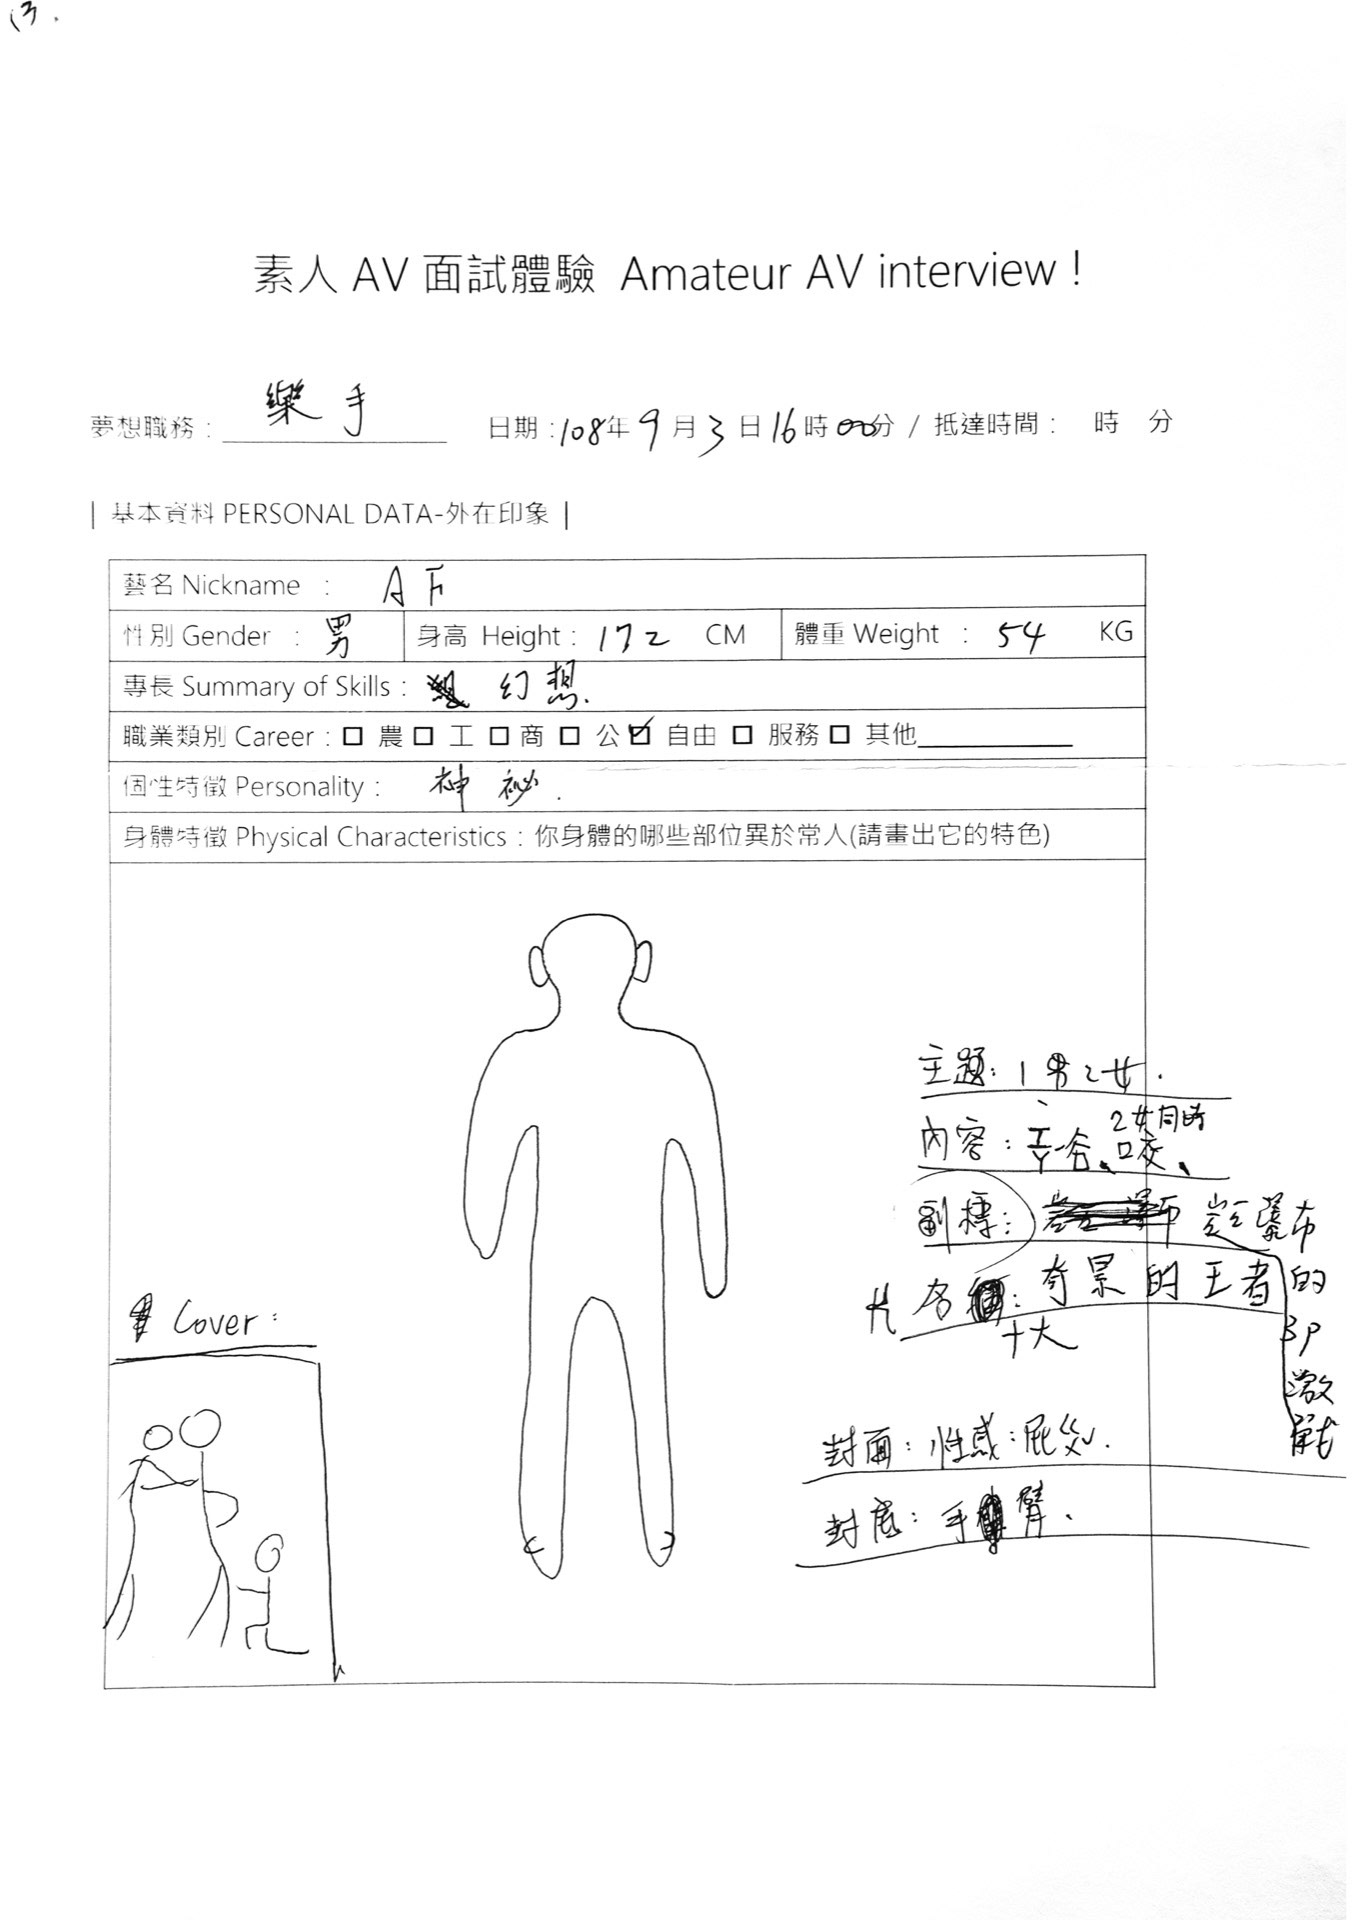 (3.
素人 AV 面試體驗 Amateur AV interview !
夢想職務 : 樂手 日期 : 108年 9月 3日 16時 00分 / 抵達時間 : 時 分
| 基本資料 PERSONAL DATA-外在印象 |
藝名 Nickname : A F
性別 Gender : 男 身高 Height : 172 CM 體重 Weight : 54 KG
專長 Summary of Skills : 幻想.
職業類別 Career : □ 農 □ 工 □ 商 □ 公 ☑ 自由 □ 服務 □ 其他
個性特徵 Personality : 神祕.
身體特徵 Physical Characteristics : 你身體的哪些部位異於常人(請畫出它的特色)
主題: 1男2女.
內容: 2女同時
口交、
副標: 瀑布的3P激戰
片名: 奇景的王者
十大
Cover:
封面: 性感:屁
封底: 手臂.